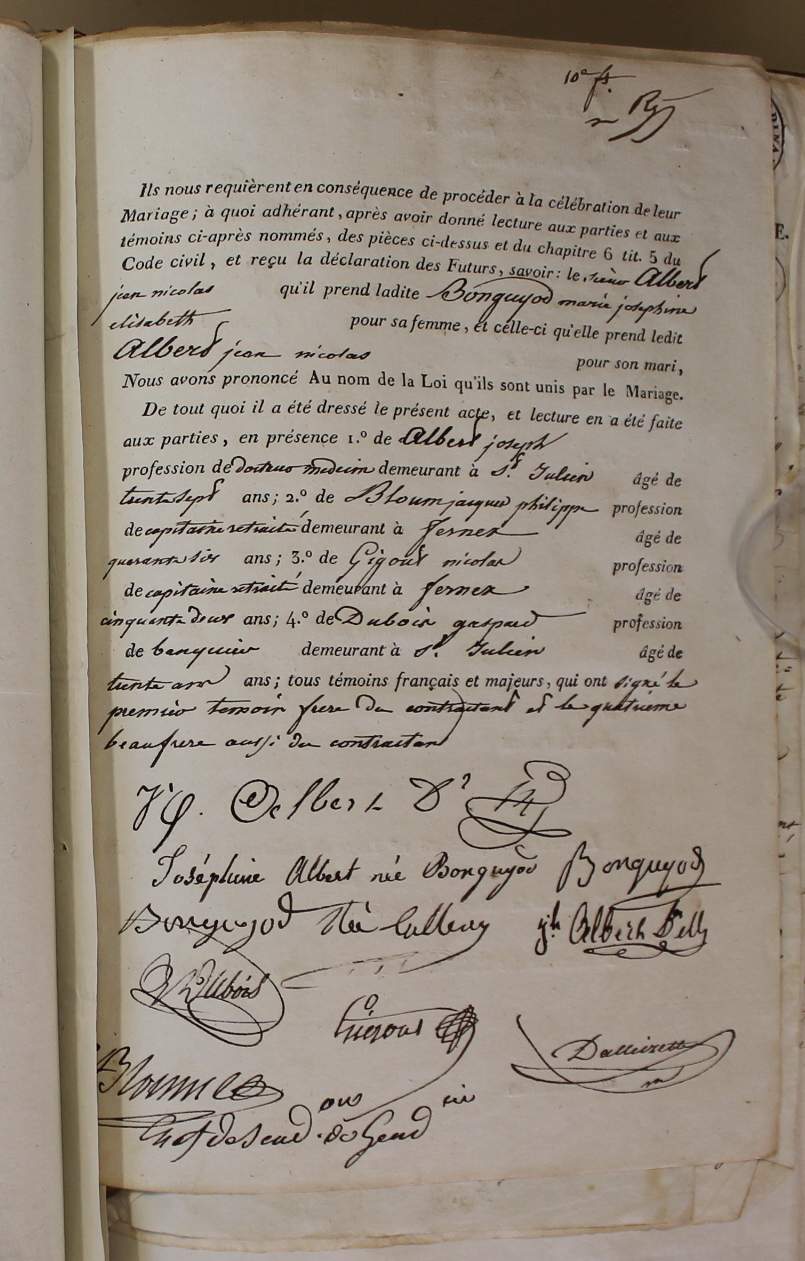 10e ft.
Ry
Ils nous requièrent en conséquence de procéder à la célébration de leur
Mariage; à quoi adhérant, après avoir donné lecture aux parties et aux
témoins ci-après nommés, des pièces ci-dessus et du chapitre 6 tit. 5 du
Code civil, et reçu la déclaration des Futurs, savoir: le sieur Albert
jean nicolas qu'il prend ladite Bonguyod marie josephine
elisabeth pour sa femme, et celle-ci qu'elle prend ledit
Albert jean nicolas pour son mari,
Nous avons prononcé Au nom de la Loi qu'ils sont unis par le Mariage.
De tout quoi il a été dressé le présent acte, et lecture en a été faite
aux parties, en présence 1.º de Albert joseph
profession de docteur medecin demeurant à St. Julien âgé de
trente sept ans; 2.º de Bloum jacques philippe profession
de capitaine retraité demeurant à fernex âgé de
quarante six ans; 3.º de Gigout nicolas profession
de capitaine retraité demeurant à fernex âgé de
cinquante deux ans; 4.º de Dubois gaspard profession
de banquier demeurant à St. Julien âgé de
trente ans ans; tous témoins français et majeurs, qui ont signé le
premier temoin frere du contractant et le quatrieme
beaufrere aussi du contractant
Albert Dr
Joséphine Albert née Bonguyod Bonguyod
Bonguyod Née jh Albert
Dubois
Gigout
Bloume